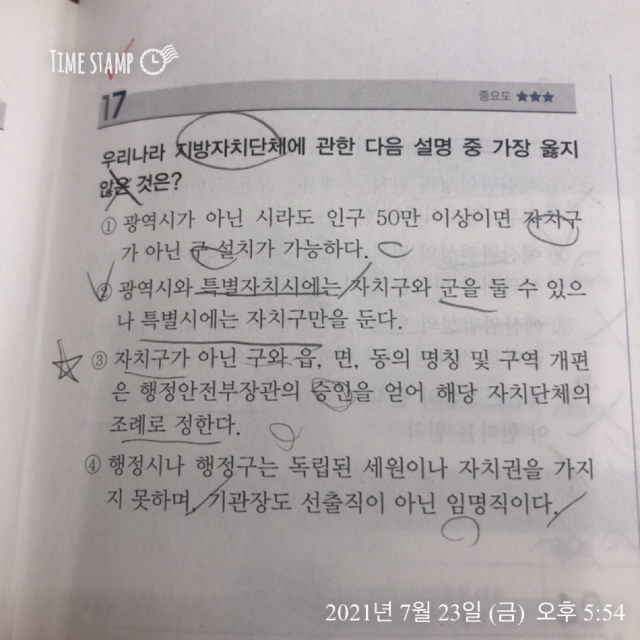 TIME STAMP
17
중요도 ★★★
우리나라 지방자치단체에 관한 다음 설명 중 가장 옳지
않은 것은?
① 광역시가 아닌 시라도 인구 50만 이상이면 자치구
가 아닌 구 설치가 가능하다.
② 광역시와 특별자치시에는 자치구와 군을 둘 수 있으
나 특별시에는 자치구만을 둔다.
③ 자치구가 아닌 구와 읍, 면, 동의 명칭 및 구역 개편
은 행정안전부장관의 승인을 얻어 해당 자치단체의
조례로 정한다.
④ 행정시나 행정구는 독립된 세원이나 자치권을 가지
지 못하며, 기관장도 선출직이 아닌 임명직이다.
2021년 7월 23일 (금) 오후 5:54